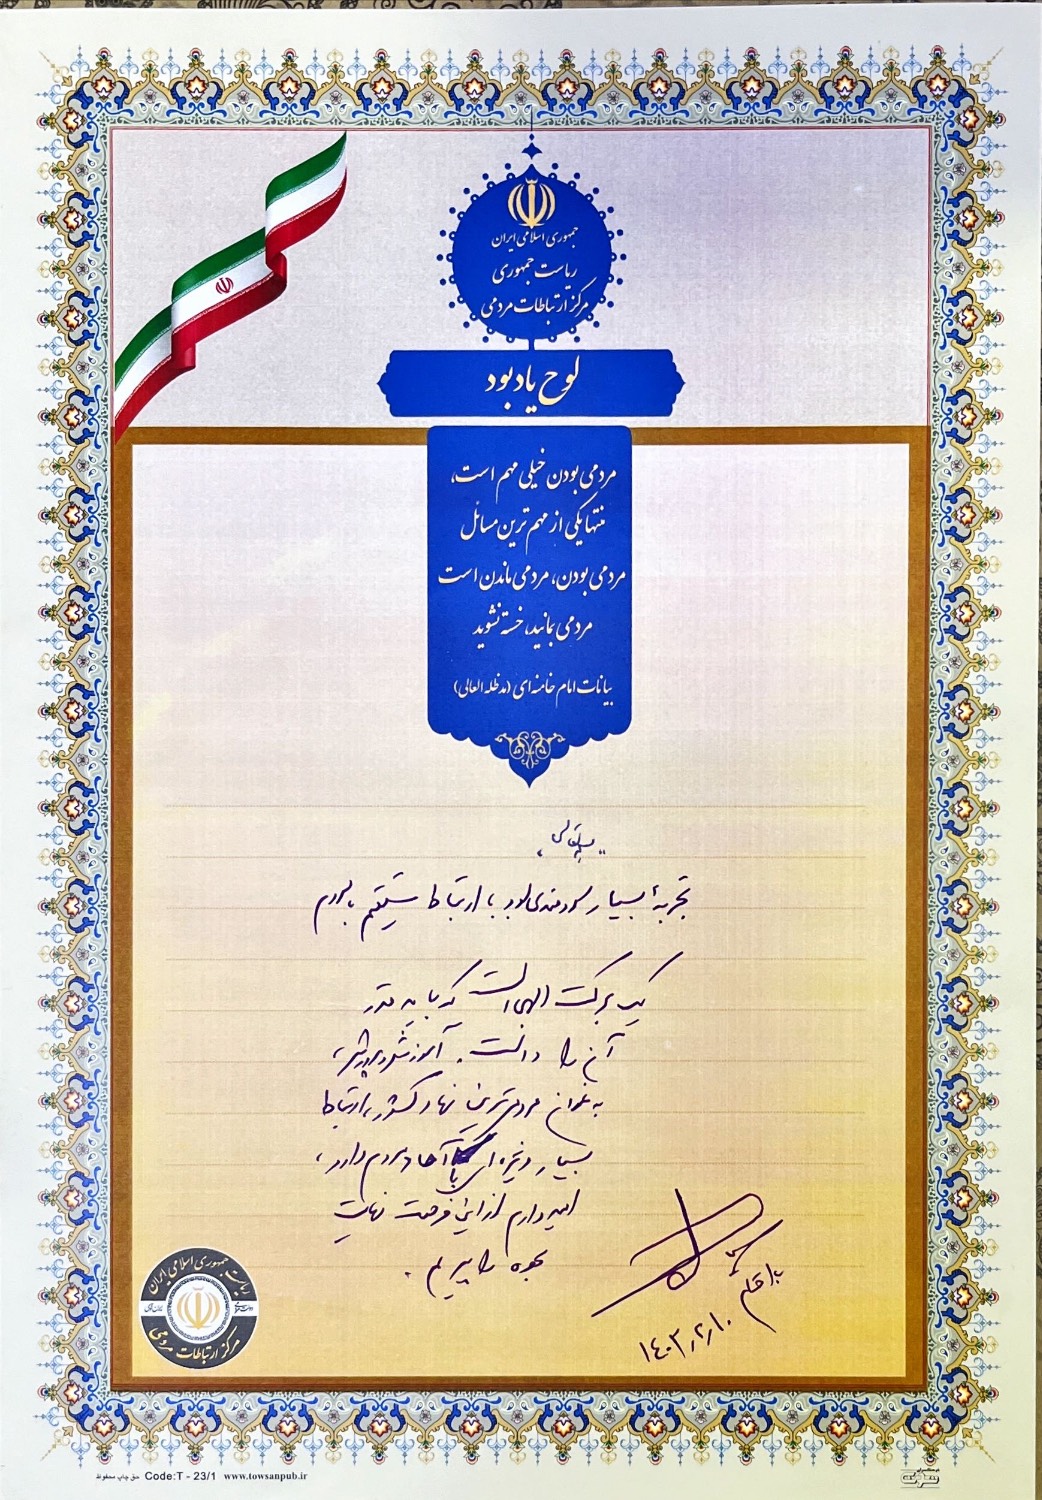 جمهوری اسلامی ایران
ریاست جمهوری
مرکز ارتباطات مردمی
لوح یادبود
مردمی بودن خیلی مهم است،
منتها یکی از مهم ترین مسائل
مردمی بودن، مردمی ماندن است
مردمی بمانید، خسته نشوید
بیانات امام خامنه ای (مدظله العالی)
بسمه تعالی
تجربهٔ بسیار سودمندی بود با ارتباط مستقیم با مردم
یک برکت الهی است که باید قدر
آن را دانست. آموزش و پرورش،
به عنوان مردمی ترین نهاد کشور، ارتباط
بسیار ویژه ای با آحاد مردم دارد،
امیدوارم از این فرصت نهایت
بهره را ببریم.
۱۴۰۳٫۲٫۱۰
ریاست جمهوری اسلامی ایران
مرکز ارتباطات مردمی
حق چاپ محفوظ Code:T - 23/1 www.towsanpub.ir